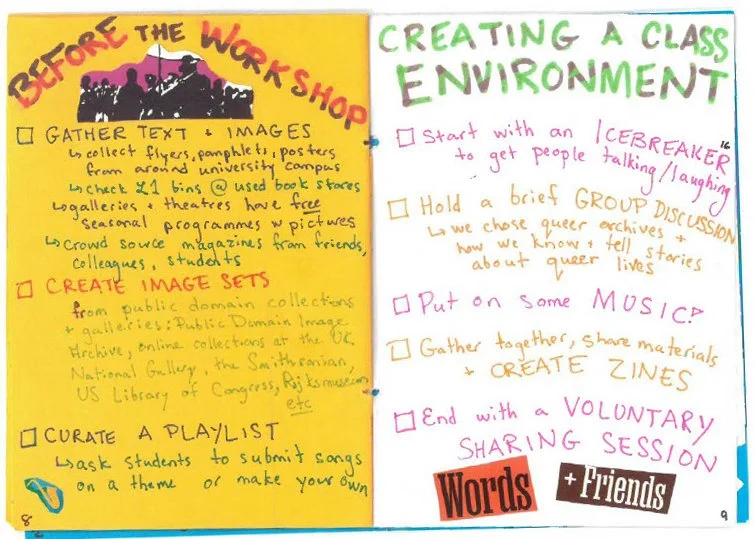 BEFORE THE WORKSHOP
GATHER TEXT + IMAGES
↳ collect flyers, pamphlets, posters
from around university campus
↳ check £1 bins @ used book stores
↳ galleries + theatres have free
seasonal programmes w pictures
↳ Crowd source magazines from friends,
colleagues, students
CREATE IMAGE SETS
from public domain collections
+ galleries: Public Domain Image
Archive, online collections at the UK
National Gallery, the Smithsonian,
US Library of Congress, Rijksmuseum
etc
CURATE A PLAYLIST
↳ ask students to submit songs
on a theme or make your own
8
CREATING A CLASS
ENVIRONMENT
Start with an ICEBREAKER
to get people talking/laughing
16
Hold a brief GROUP DISCUSSION
↳ we chose queer archives +
how we know + tell stories
about queer lives
Put on some MUSIC!
Gather together, share materials
+ CREATE ZINES
End with a VOLUNTARY
SHARING SESSION
Words + Friends
9